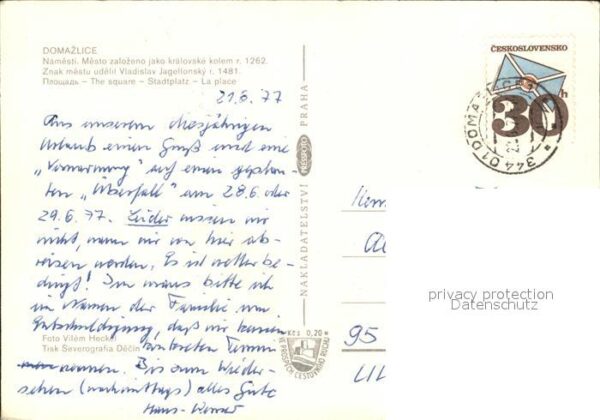 DOMAŽLICE
Náměstí. Město založeno jako královské kolem r. 1262.
Znak městu udělil Vladislav Jagellonský r. 1481.
Площадь – The square – Stadtplatz – La place
21.6.77
Aus unserem diesjährigen
Urlaub einen Gruß und eine
„Vorwarnung" auf einen geplan-
ten „Überfall" am 28.6. oder
29.6.77. Leider wissen wir
nicht, wann wir von hier ab-
reisen werden. Es ist wetterbe-
dingt! Im voraus bitte ich
im Namen der Familie um
Entschuldigung, daß wir keinen
konkreten Termin
nennen. Bis zum Wieder-
sehen (nachmittags) alles Gute
Hans-Werner
Foto Vilém Heckel
Tisk Severografia Děčín
NAKLADATELSTVÍ PRESSFOTO PRAHA
Kčs 0,20
VE PROSPĚCH CESTOVNÍHO RUCHU
ČESKOSLOVENSKO
30h
344 01 DOMAŽLICE
95
privacy protection
Datenschutz